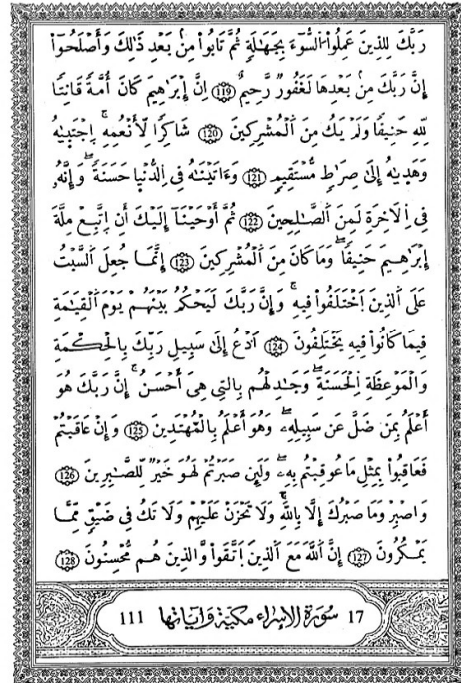 رَبَّكَ لِلذِينَ عَمِلُواْ السُّوٓءَ بِجَهَٰلَةٍ ثُمَّ تَابُواْ مِنۢ بَعْدِ ذَٰلِكَ وَأَصْلَحُوٓاْ
إِنَّ رَبَّكَ مِنۢ بَعْدِهَا لَغَفُورٌ رَّحِيمٌ 119 إِنَّ إِبْرَٰهِيمَ كَانَ أُمَّةً قَانِتًا
لِّلهِ حَنِيفًا وَلَمْ يَكُ مِنَ اَلْمُشْرِكِينَ 120 شَاكِرًا لِّأَنْعُمِهِ اِجْتَبَيٰهُ
وَهَدَيٰهُ إِلَىٰ صِرَٰطٍ مُّسْتَقِيمٍ 121 وَءَاتَيْنَٰهُ فِى اِلدُّنْيَا حَسَنَةً وَإِنَّهُۥ
فِى اِلَاخِرَةِ لَمِنَ اَلصَّٰلِحِينَ 122 ثُمَّ أَوْحَيْنَآ إِلَيْكَ أَنِ اِتَّبِعْ مِلَّةَ
إِبْرَٰهِيمَ حَنِيفًا وَمَا كَانَ مِنَ اَلْمُشْرِكِينَ 123 إِنَّمَا جُعِلَ اَلسَّبْتُ
عَلَى اَلذِينَ اَخْتَلَفُواْ فِيهِ وَإِنَّ رَبَّكَ لَيَحْكُمُ بَيْنَهُمْ يَوْمَ اَلْقِيَٰمَةِ
فِيمَا كَانُواْ فِيهِ يَخْتَلِفُونَ 124 اَدْعُ إِلَىٰ سَبِيلِ رَبِّكَ بِالْحِكْمَةِ
وَالْمَوْعِظَةِ اِلْحَسَنَةِ وَجَٰدِلْهُم بِالتِى هِىَ أَحْسَنُ إِنَّ رَبَّكَ هُوَ
أَعْلَمُ بِمَن ضَلَّ عَن سَبِيلِهِۦ وَهُوَ أَعْلَمُ بِالْمُهْتَدِينَ 125 وَإِنْ عَاقَبْتُمْ
فَعَاقِبُواْ بِمِثْلِ مَا عُوقِبْتُم بِهِۦ وَلَئِن صَبَرْتُمْ لَهُوَ خَيْرٌ لِّلصَّٰبِرِينَ 126
وَاصْبِرْ وَمَا صَبْرُكَ إِلَّا بِاللَّهِ وَلَا تَحْزَنْ عَلَيْهِمْ وَلَا تَكُ فِى ضَيْقٍ مِّمَّا
يَمْكُرُونَ 127 إِنَّ اَللَّهَ مَعَ اَلذِينَ اَتَّقَواْ وَّالذِينَ هُم مُّحْسِنُونَ 128
17 سورة الإسراء مكية وآياتها 111